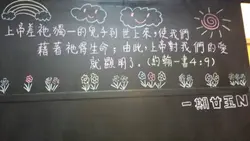 上帝差祂獨一的兒子到世上來，使我們
藉著祂得生命；由此，上帝對我們的愛
就顯明了。（約翰一書4：9）